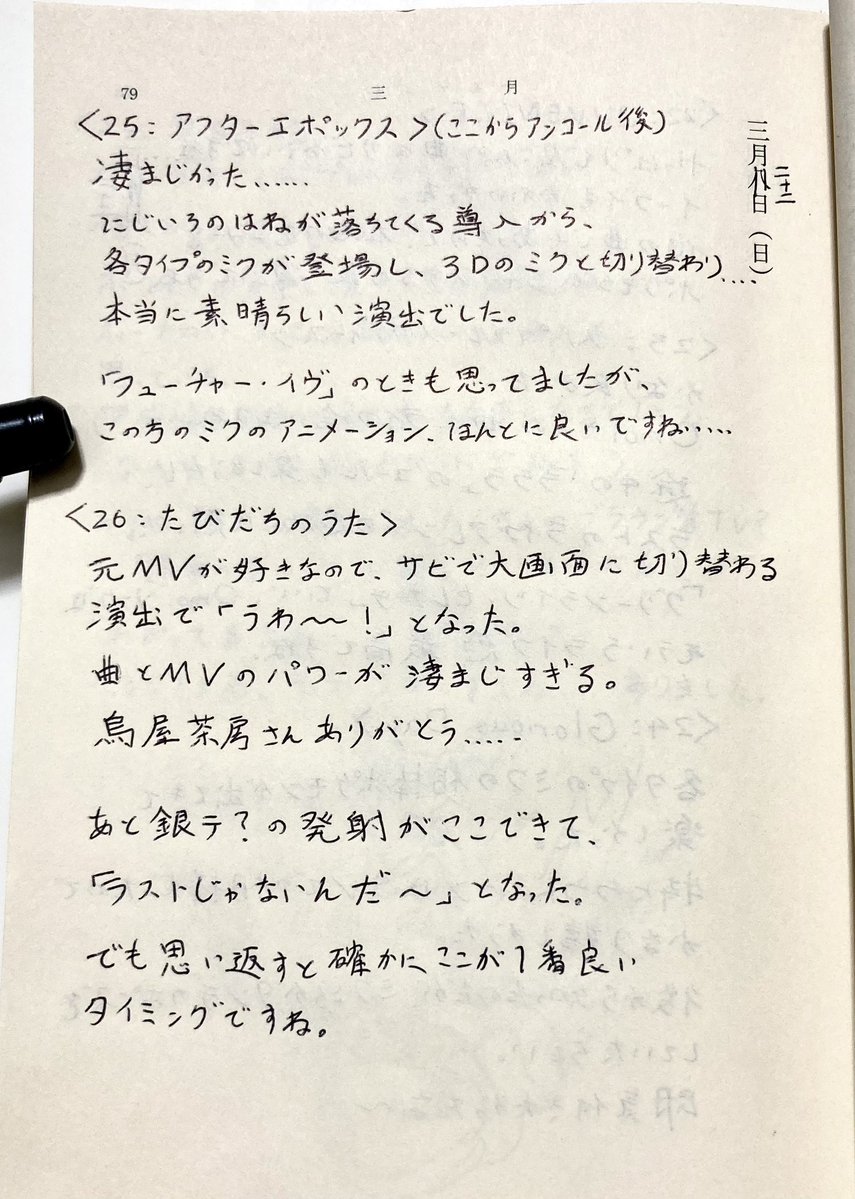 79 三月
三月二十二日（日）
＜25：アフターエポックス＞（ここからアンコール後）
凄まじかった……
にじいろのはねが落ちてくる導入から、
各タイプのミクが登場し、3Dのミクと切り替わり….
本当に素晴らしい演出でした。
「フューチャー・イヴ」のときも思ってましたが、
このちのミクのアニメーション、ほんとに良いですね……
＜26：たびだちのうた＞
元MVが好きなので、サビで大画面に切り替わる
演出で「うわ〜〜！」となった。
曲とMVのパワーが凄まじすぎる。
鳥屋茶房さんありがとう…..
あと銀テ？の発射がここできて、
「ラストじゃないんだ〜」となった。
でも思い返すと確かに、ここが1番良い
タイミングですね。